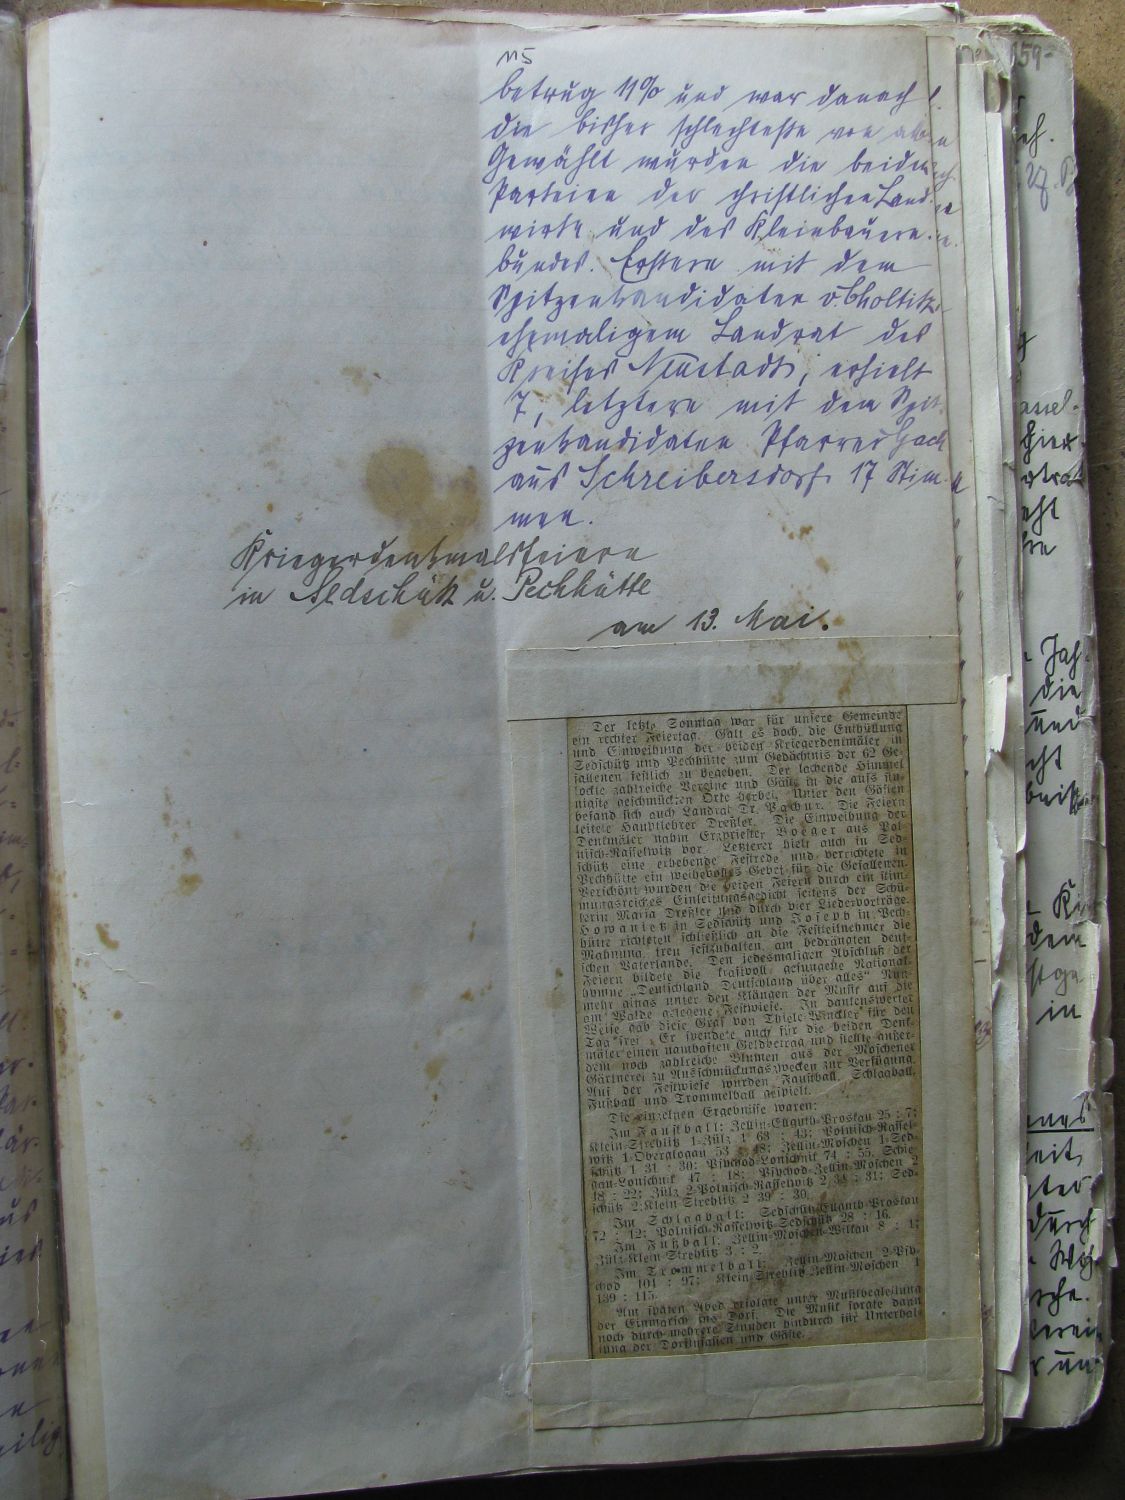 115
betrug 11% und war danach
die bisher schlechteste von allen
Gewählt wurden die beiden
Parteien der christlichen Land-
wirte und des Kleinbauern-
bundes. Erstere mit dem
Spitzenkandidaten v. Choltitz
ehemaligem Landrat des
Kreises Neustadt, erhielt
7, letztere mit dem Spit-
zenkandidaten Pfarrer
aus Schreibersdorf 17 Stim-
men.
Kriegerdenkmalsfeiern
in Sedschütz u. Pechhütte
am 13. Mai.
Der letzte Sonntag war für unsere Gemeinde
ein rechter Feiertag. Galt es doch, die Enthüllung
und Einweihung der beiden Kriegerdenkmäler in
Sedschütz und Pechhütte zum Gedächtnis der 62 Ge-
fallenen festlich zu begehen. Der lachende Himmel
lockte zahlreiche Vereine und Gäste in die aufs sin-
nigste geschmückten Orte herbei. Unter den Gästen
befand sich auch Landrat Dr. Pachur. Die Feiern
leitete Hauptlehrer Dreßler. Die Einweihung der
Denkmäler nahm Erzpriester Boeger aus Pol-
nisch-Rasselwitz vor. Letzterer hielt auch in Sed-
schütz eine erhebende Festrede und verrichtete in
Pechhütte ein weihevolles Gebet für die Gefallenen.
Verschönt wurden die beiden Feiern durch ein stim-
mungsreiches Einleitungsgedicht seitens der Schü-
lerin Maria Dreßler und durch vier Liedervorträge.
Howanietz in Sedschütz und Joseph in Pech-
hütte richteten schließlich an die Festteilnehmer die
Mahnung, treu festzuhalten am bedrängten deut-
schen Vaterlande. Den jedesmaligen Abschluß der
Feiern bildete die kraftvoll gesungene National-
hymne „Deutschland Deutschland über alles“ Nun-
mehr gings unter den Klängen der Musik auf die
am Walde gelegene Festwiese. In dankenswerter
Weise gab diese Graf von Thiele-Winckler für den
Tag frei. Er spendete auch für die beiden Denk-
mäler einen namhaften Geldbetrag und stellte außer-
dem noch zahlreiche Blumen aus der Moschener
Gärtnerei zu Ausschmückungszwecken zur Verfügung.
Auf der Festwiese wurden Faustball, Schlagball,
Fußball und Trommelball gespielt.
Die einzelnen Ergebnisse waren:
Im Faustball: Zellin-Ellguth-Proskau 25 : 7;
Klein-Strehlitz 1-Zülz 1 63 : 43; Polnisch-Rassel-
witz 1-Oberglogau 53 : 48; Zellin-Moschen 1-Sed-
schütz 1 31 : 30; Psychod-Lonschnik 74 : 55. Schie-
gau-Lonschnik 47 : 18; Psychod-Zellin-Moschen 2
18 : 22; Zülz 2-Polnisch-Rasselwitz 2 34 : 31; Sed-
schütz 2-Klein Strehlitz 2 39 : 30.
Im Schlagball: Sedschütz-Ellguth-Proskau
72 : 12; Polnisch-Rasselwitz-Sedschütz 28 : 16.
Im Fußball: Zellin-Moschen-Wilkau 8 : 1;
Zülz-Klein-Strehlitz 3 : 2.
Im Trommelball: Zellin-Moschen 2-Psy-
chod 101 : 97; Klein-Strehlitz-Zellin-Moschen 1
139 : 115.
Am späten Abend erfolgte unter Musikbegleitung
der Einmarsch ins Dorf. Die Musik sorgte dann
noch durch mehrere Stunden hindurch für Unterhal-
tung der Dorfinsassen und Gäste.